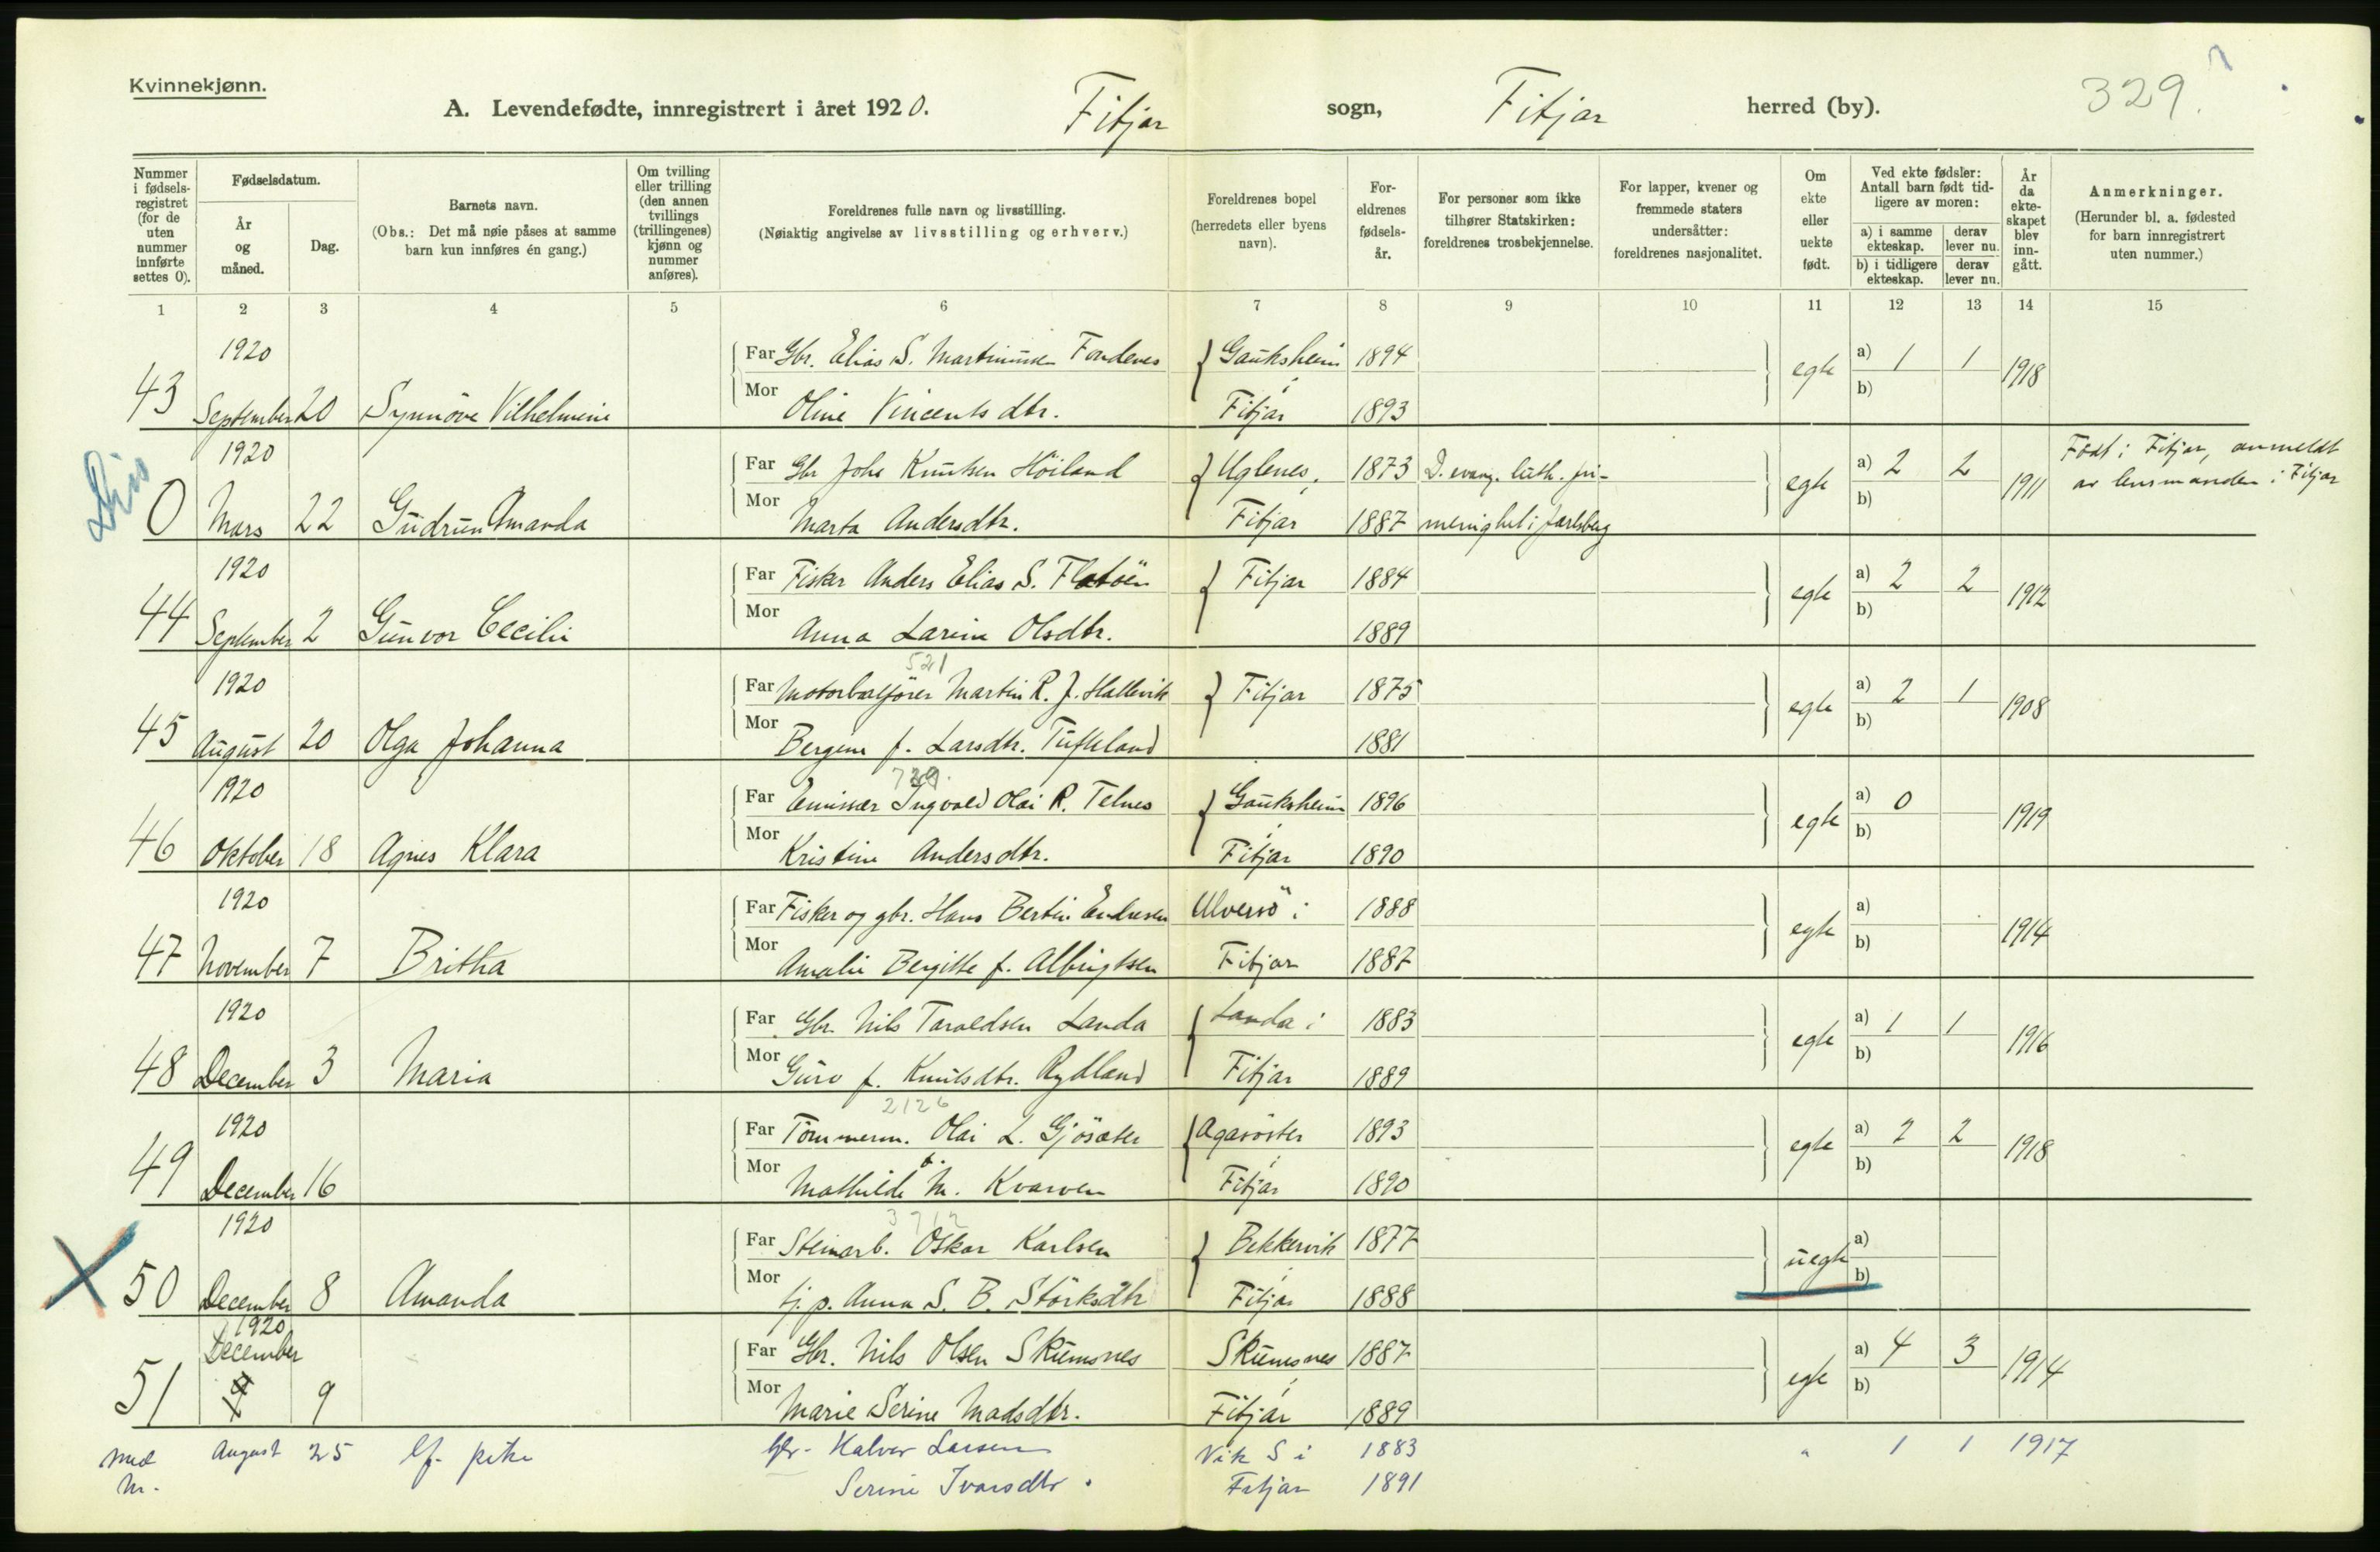 Kvinnekjønn.
A. Levendefødte, innregistrert i året 1920. Fitjar sogn, Fitjar herred (by). 329.
Nummer i fødsels-registret (for de uten nummer innførte settes 0).
Fødselsdatum.
År og måned.
Dag.
Barnets navn.
(Obs.: Det må nøie påses at samme barn kun innføres én gang.)
Om tvilling eller trilling (den annen tvillings (trillingenes) kjønn og nummer anføres).
Foreldrenes fulle navn og livsstilling.
(Nøiaktig angivelse av livsstilling og erhverv.)
Foreldrenes bopel (herredets eller byens navn).
For-eldrenes fødsels-år.
For personer som ikke tilhører Statskirken: foreldrenes trosbekjennelse.
For lapper, kvener og fremmede staters undersåtter: foreldrenes nasjonalitet.
Om ekte eller uekte født.
Ved ekte fødsler: Antall barn født tid-ligere av moren:
a) i samme ekteskap. derav lever nu.
b) i tidligere ekteskap. derav lever nu.
År da ekte-skapet blev inn-gått.
Anmerkninger.
(Herunder bl. a. fødested for barn innregistrert uten nummer.)
1 2 3 4 5 6 7 8 9 10 11 12 13 14 15
1920 Far Gbr. Elias S. Martinusen Fondenes Gauksheim 1894 a) 1 1
43 September 20 Synnöve Vilhelmine Mor Oline Vincents dtr. i Fitjar 1893 egte b) 1918
1920 Far Gbr Johs Knutsen Höiland Uglenes, 1873 D. evang. luth. fri- a) 2 2 Född i Fitjar, anmeldt
0 Mars 22 Gudrun Amanda Mor Marta Andersdtr. Fitjar 1887 menighet i Jarlsberg egte b) 1911 av lensmanden i Fitjar
1920 Far Fisker Anders Elias S. Flatöen Fitjar 1884 a) 2 2
44 September 2 Gunvor Cecilie Mor Anna Larine Olsdtr. 1889 egte b) 1912
521
1920 Far Motorbaatförer Martin R. J. Hallevik Fitjar 1875 a) 2 1
45 August 20 Olga Johanna Mor Bergine f. Larsdtr. Tufteland 1881 egte b) 1908
729.
1920 Far Emissær Ingvald Olai R. Telnes Gauksheim 1896 a) 0
46 Oktober 18 Agnes Klara Mor Kristine Andersdtr. i Fitjar 1890 egte b) 1919
1920 Far Fisker og gbr. Hans Bertin Endresen Ulversö i 1888 a)
47 November 7 Britha Mor Amalie Bergitte f. Albrigtsen Fitjar 1887 egte b) 1914
1920 Far Gbr. Nils Taraldsen Landa Landa i 1883 a) 1 1
48 December 3 Maria Mor Guro f. Knutsdtr. Rydland Fitjar 1889 egte b) 1916
2126
1920 Far Tömmerm. Olai L. Gjösæter Agasöster 1893 a) 2 2
49 December 16 Mor Mathilde M. Kvarven i Fitjar 1890 egte b) 1918
3712
1920 Far Steinarb. Oskar Karlsen Bekkervik 1877 a)
50 December 8 Amanda Mor tj. p. Anna S. B. Störksdtr i Fitjar 1888 uegte b)
1920 December Far Gbr. Nils Olsen Skumsnes Skumsnes 1887 a) 4 3
51 9 Mor Marie Serine Madsdtr. i Fitjar 1889 egte b) 1914
August 25 lf. pike Gbr. Halvor Larsen Vik S i 1883 " 1 1 1917
Serine Ivarsdtr. Fitjar 1891